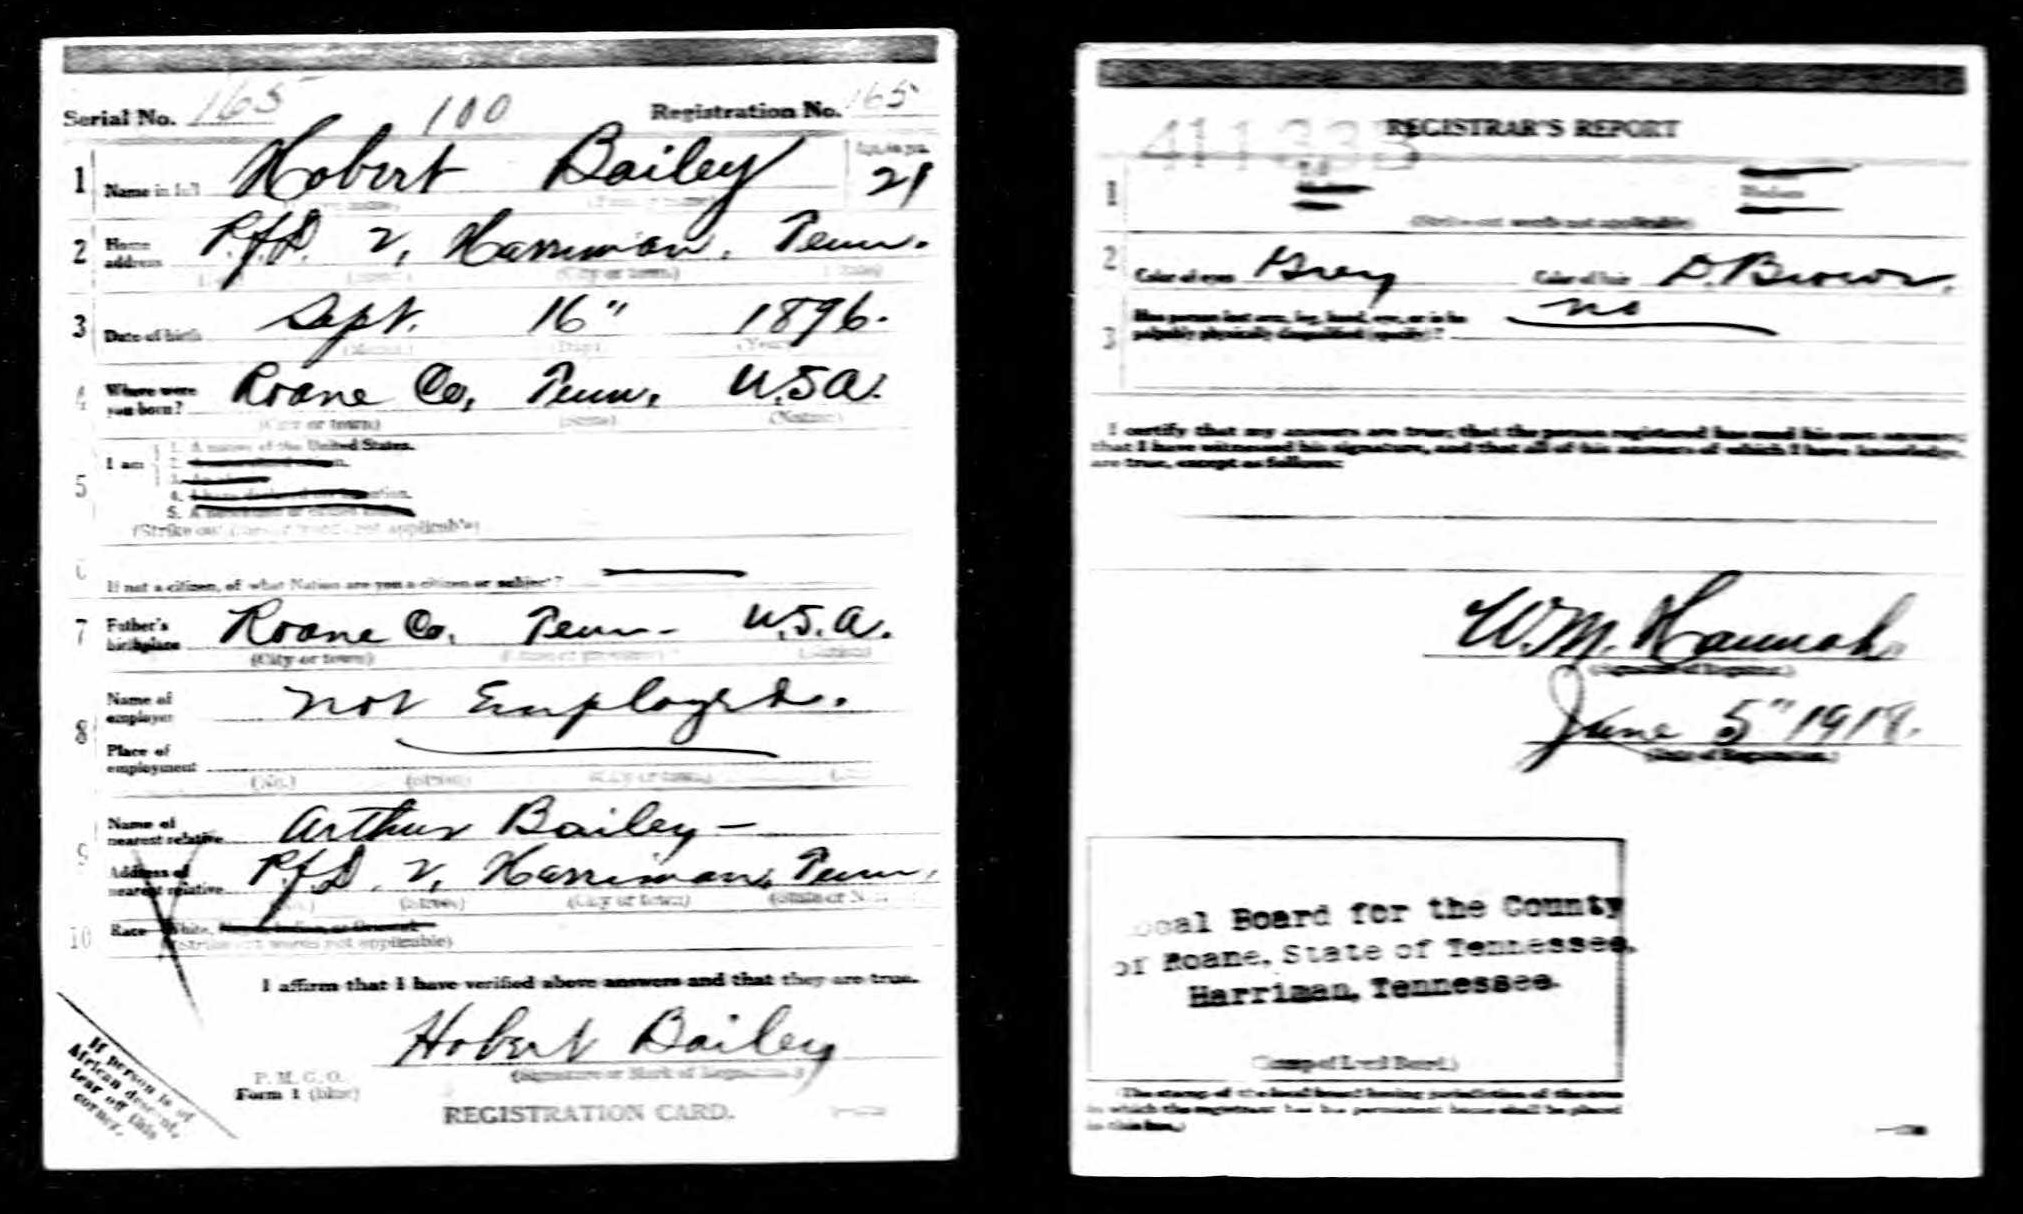 Serial No. 165 100 Registration No. 165
1 Name in full Hobert Bailey 21
2 Home address R.f.D. 2, Harriman, Tenn.
3 Date of birth Sept. 16" 1896.
(Month) (Day) (Year)
4 Where were you born? Roane Co, Tenn, U.S.A.
(City or town) (State) (Nation)
5 I am 1. A native of the United States.
2.
3. An alien
4. I have declared my intention.
5.
(Strike out not applicable)
6 If not a citizen, of what Nation are you a citizen or subject?
7 Father's birthplace Roane Co, Tenn- U.S.A.
(City or town)
8 Name of employer not Employed.
Place of employment
(No.) (Street) (City or town)
9 Name of nearest relative Arthur Bailey-
Address of nearest relative R.f.D. 2, Harriman, Tenn,
(No.) (Street) (City or town)
10 Race White, Negro, Indian, or Oriental
(Strike out words not applicable)
I affirm that I have verified above answers and that they are true.
Hobert Bailey
(Signature or Mark of Registrant)
P. M. G. O.
Form 1 (blue)
REGISTRATION CARD.
If person is of
African descent,
tear off this
corner.
REGISTRAR'S REPORT
1
(Strike out words not applicable)
2 Color of eyes Grey Color of hair D. Brown,
3 Has person lost arm, leg, hand, eye, or is he palpably physically disqualified (specify)? no
I certify that my answers are true; that the person registered has read his own answers;
that I have witnessed his signature, and that all of his answers of which I have knowledge
are true, except as follows:
W.M. Hannah
(Signature of Registrar)
June 5" 1918.
(Date of Registration)
Local Board for the County
of Roane, State of Tennessee,
Harriman, Tennessee.
(Stamp of Local Board.)
(The stamp of the local board having jurisdiction of the area
in which the registrant has his permanent home shall be placed
in this box.)